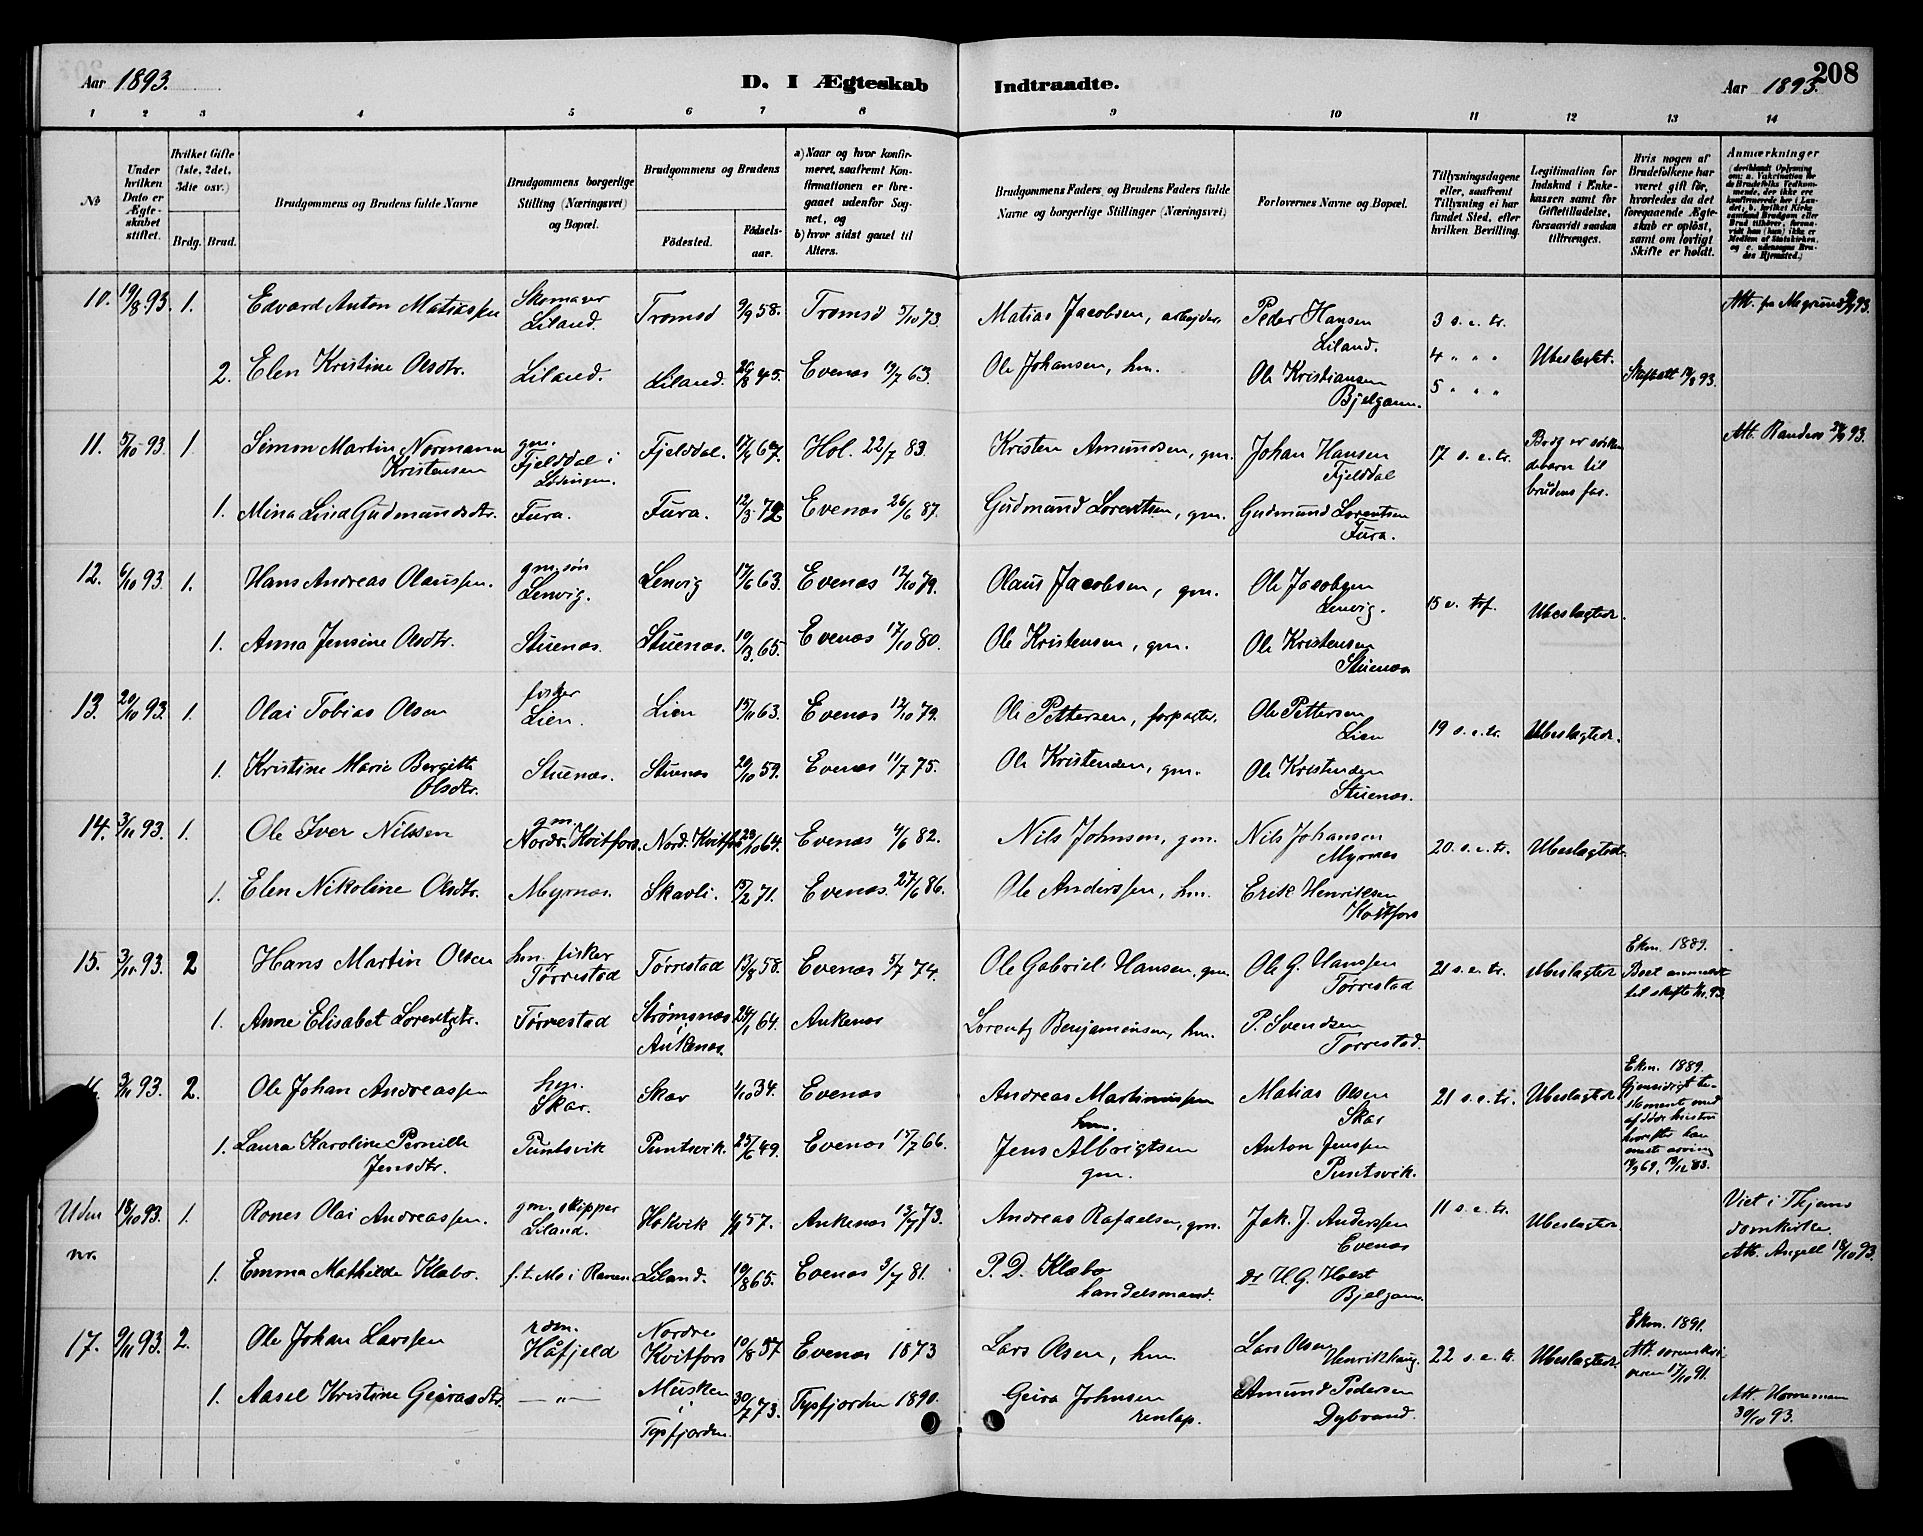 Aar 1893.
D. I Ægteskab Indtraadte.
Aar 1893.
208
1 2 3 4 5 6 7 8 9 10 11 12 13 14
No
Under hvilken Dato er Ægteskabet stiftet.
Hvilket Gifte (1ste, 2det, 3die osv.)
Brdg. Brud.
Brudgommens og Brudens fulde Navne
Brudgommens borgerlige Stilling (Næringsvei) og Bopæl.
Brudgommens og Brudens
Födested.
Födselsaar.
a) Naar og hvor konfirmeret, saafremt Konfirmationen er foregaaet udenfor Sognet, og
b) hvor sidst gaaet til Alters.
Brudgommens Faders og Brudens Faders fulde Navne og borgerlige Stillinger (Næringsvei)
Forlovernes Navne og Bopæl.
Tillysningsdagene eller, saafremt Tillysning ei har fundet Sted, efter hvilken Bevilling.
Legitimation for Indskud i Enkekassen samt for Giftetilladelse, forsaavidt saadan tiltrænges.
Hvis nogen af Brudefolkene har været gift før, hvorledes da det foregaaende Ægteskab er opløst, samt om lovligt Skifte er holdt.
Anmærkninger
10. 19/8 93. 1. Edvard Anton Matiassen Skomager Liland. Tromsø 9/9 58. Tromsø 5/10 73. Matias Jacobsen, arbejder Peder Hansen Liland. 3 s. e. tr.
4 " " " Ubeslægt.
2. Elen Kristine Olsdtr. Liland. Liland. 45. Evenes 19/7 63. Ole Johansen, hm. Ole Kristiansen Bjelgam. 5 " " " 93.
11. 5/10 93. 1 Simon Martin Normann Kristensen gm. Fjelddal i Lødingen. Fjelddal. 67. Hol. 22/7 83. Kristen Amundsen, gm. Johan Hansen Fjelddal 17 s. e. tr. Brdg er til brudens far. Att. Randers 93.
1. Mina Lind Gudmundsdtr. Fura. Fura. 12/3 72 Evenes 26/6 87. Gudmund Lorentsen, gm. Gudmund Lorentsen Fura.
12. 6/10 93. 1. Hans Andreas Olaussen. gm. søn Lenvig. Lenvig 17/6 63. Evenes 12/10 79. Olaus Jacobsen, gm. Ole Jacobsen Lenvig. 15 s. Ubeslægtede.
1. Anna Jensine Olsdtr. Stuenes. Stuenes. 19/3 65. Evenes 17/10 80. Ole Kristensen, gm. Ole Kristensen Stuenes
13. 20/10 93. 1. Olai Tobias Olsen fisker Lien. Lien 15/11 63. Evenes 12/10 79. Ole Pettersen, forpagter. Ole Pettersen Lien 19 s. e. tr. Ubeslægtede.
1. Kristine Marie Bergitte Olsdtr. Stuenes. Stuenes 20/10 59. Evenes 11/7 75. Ole Kristensen, gm. Ole Kristensen Stuenes.
14. 3/11 93. 1. Ole Iver Nilssen gm. Nordr. Kvitfors. Nord. Kvitfors 23/10 64. Evenes 4/6 82. Nils Johnsen, gm. Nils Johansen Myrnes 20. s. e. tr. Ubeslægtede.
1. Elen Nikoline Olsdtr. Myrnes. Skavli. 15/2 71. Evenes. 27/6 86. Ole Anderssen, hm. Erik Henriksen Kvitfors
15. 3/11 93. 2 Hans Martin Olsen hm. fisker Tørrestad Tørrestad 13/8 58. Evenes 5/7 74. Ole Gabriel Hansen, gm. Ole G. Hanssen Tørrestad 21 s. e. tr. Ubeslægtede Ekm. 1889. Boet anmeldt til skifte 93.
1. Anne Elisabet Lorentzdtr. Tørrestad Strømsnes i Ankenes. 64. Ankenes Lorentz Benjaminsen, hm. P. Svendsen Tørrestad.
3/11 93. 2. Ole Johan Andreassen hm. Skar. Skar 1/10 34. Evenes Andreas Martinussen hm. Matias Olsen Skar 21 s. e. tr. Ubeslægtede Ekm. 1889. Gjensidigt testament med afdøde hustru
1. Laura Karoline Pernille Jensdtr. Puntsvik Puntsvik. 25/6 49. Evenes 15/7 66. Jens Albrigtsen gm. Anton Jenssen Puntsvik.
Uden nr. 18/10 93. 1. Rones Olai Andreassen. gm. skipper Liland. Holvik 57. Ankenes 13/7 73. Andreas Rafaelsen, gm. Jak. J. Anderssen Evenes 11 s. e. tr. Ubeslægtede Viet i Thjems domkirke. Att. Angell 18/10 93.
1. Emma Mathilde Klæbo. f. t. Mo i Ranen Liland. 19/8 65. Evenes 3/7 81. P. D. Klæbo handelsmand. Dr H. G. Holst Bjelgam.
17. 9/11 93. 2. Ole Johan Larssen rdm. Håfjeld Nordre Kvitfors 10/8 57 Evenes 1873 Lars Olsen, hm. Lars Olsen Henrikhaug. 22 s. e. tr. Ubeslægtede Ekm. 1891. Att. sorenskriveren 17/10 91.
1. Aasel Kristine Geirasdtr. — " — Musken i Tysfjorden. 30/7 73. Tysfjorden 1890. Geira Johnsen renlap. Amund Pedersen Dybvand. Att. Hornemann 30/10 93.